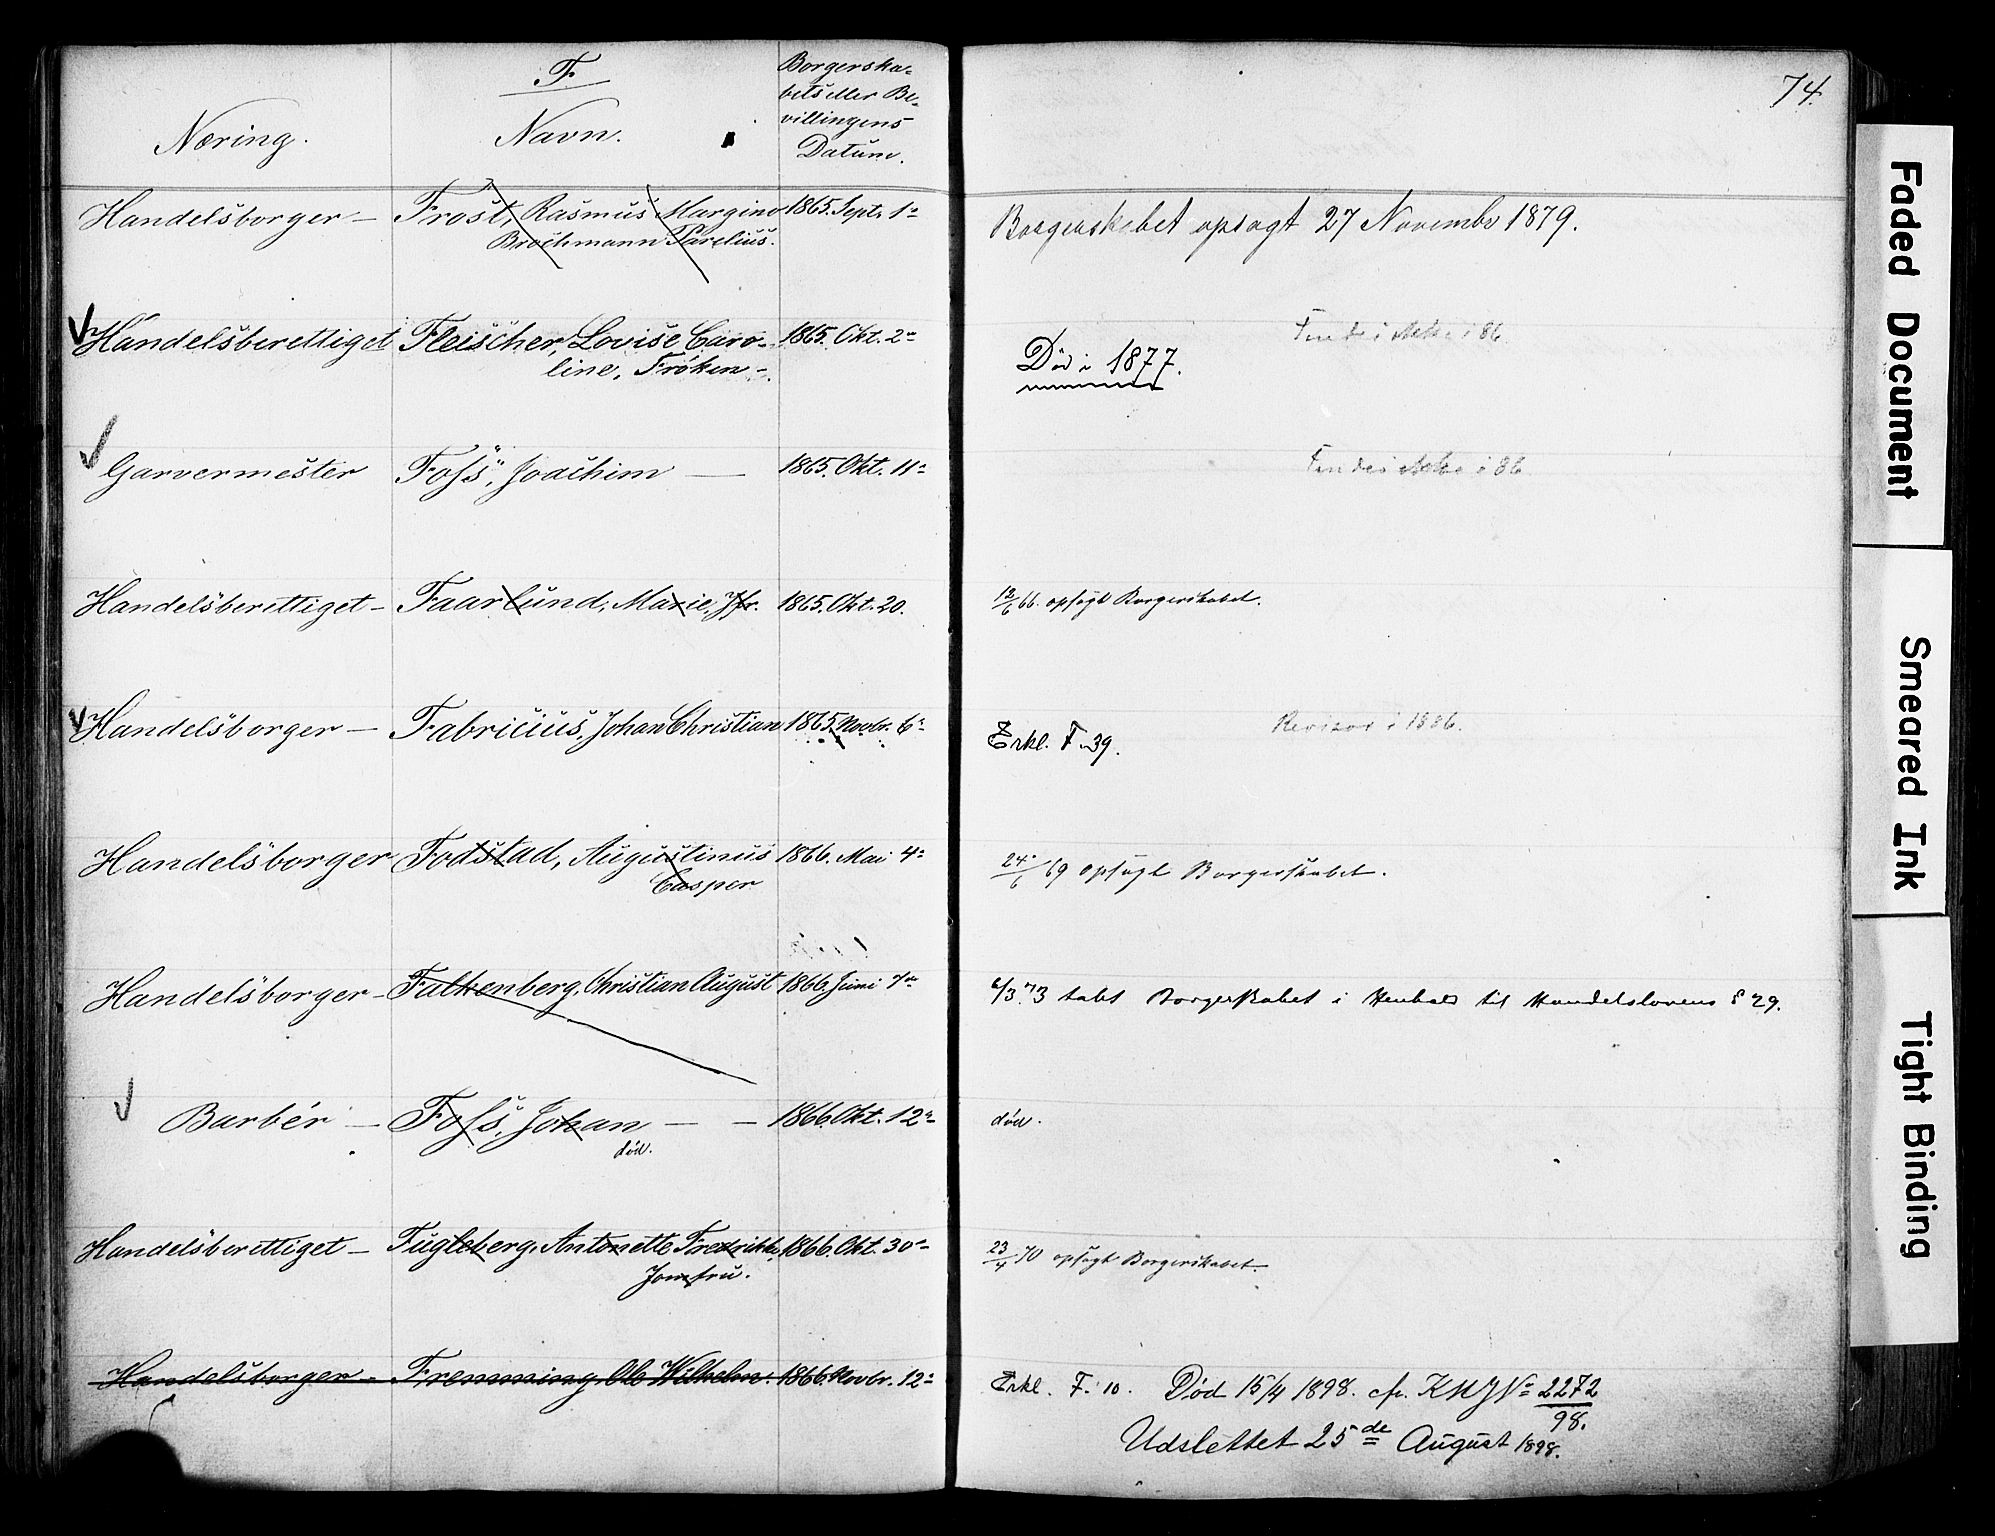 F.
Næring.
Navn.
Borgerska-
bets eller Be-
villingens
Datum.
74.
Handelsborger – Frost, Rasmus Margino 1865. Sept. 1ᵃ Borgerskabet opsagt 27 November 1879.
Brochmann Parelius.
Handelsberettiget Fleischer, Lovise Caro- 1865. Okt. 2ᵃ
line, Frøken –
Død i 1877.
i 86
Garvermester Foss, Joachim — 1865. Okt. 11ᵃ i 86
Handelsberettiget – Faarlund, Marie, Jfr. 1865. Okt. 20. 66. opsagt Borgerskabet.
Handelsborger – Fabricius, Johan Christian 1865. Novbr. 6ᵃ Erkl. F. 39. Revisor i 1886.
Handelsborger Fodstad, Augustinus 1866. Mai 4ᵃ 24/6 69 opsagt Borgerskabet.
Casper
Handelsborger – Falkenberg, Christian August 1866. Juni 7ᵃ 6/3 73 tabt Borgerskabet i Henhold til Handelslovens § 29.
Barbér – Foss, Johan – – 1866. Okt. 12ᵃ død.
død.
Handelsberettiget – Fugleberg, Antonette Fredrikke, 1866. Okt. 30ᵃ 23/4 70 opsagt Borgerskabet.
Jomfru.
Handelsborger – Fremming, Ole Wilhelm. 1866. Novbr. 12ᵃ Erkl. F. 10. Død 15/4 1898. cfr. 2272
98.
Udslettet 25de August 1898.
Faded Document
Smeared Ink
Tight Binding